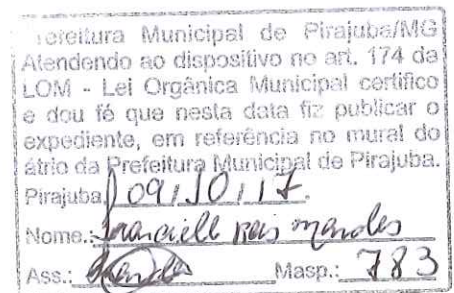 Prefeitura Municipal de Pirajuba/MG
Atendendo ao dispositivo no art. 174 da
LOM - Lei Orgânica Municipal certifico
e dou fé que nesta data fiz publicar o
expediente, em referência no mural do
átrio da Prefeitura Municipal de Pirajuba.
Pirajuba, 09/10/17.
Nome.: Francielle Reis Mendes
Ass.: Masp.: 783